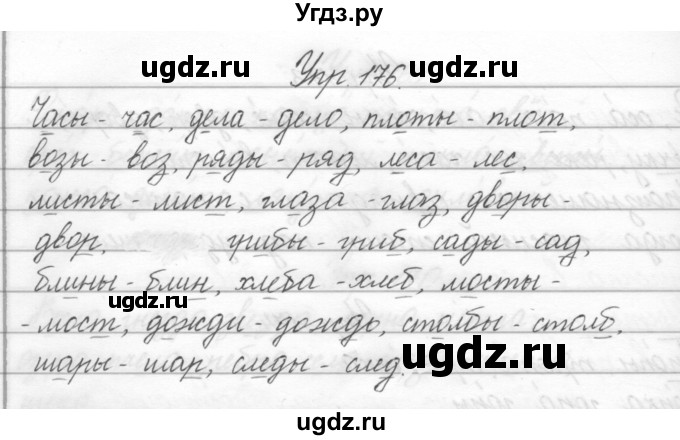 Угдз.ру
ugdz.ru ugdz.ru
Упр. 176.
Часы - час, дела - дело, плоты - плот,
возы - воз, ряды - ряд, леса - лес,
ugdz.ru ugdz.ru
листы - лист, глаза - глаз, дворы -
двор, грибы - гриб, сады - сад,
блины - блин, хлеба - хлеб, мосты -
ugdz.ru
- мост, дожди - дождь, столбы - столб,
шары - шар, следы - след.
ugdz.ru
ugdz.ru